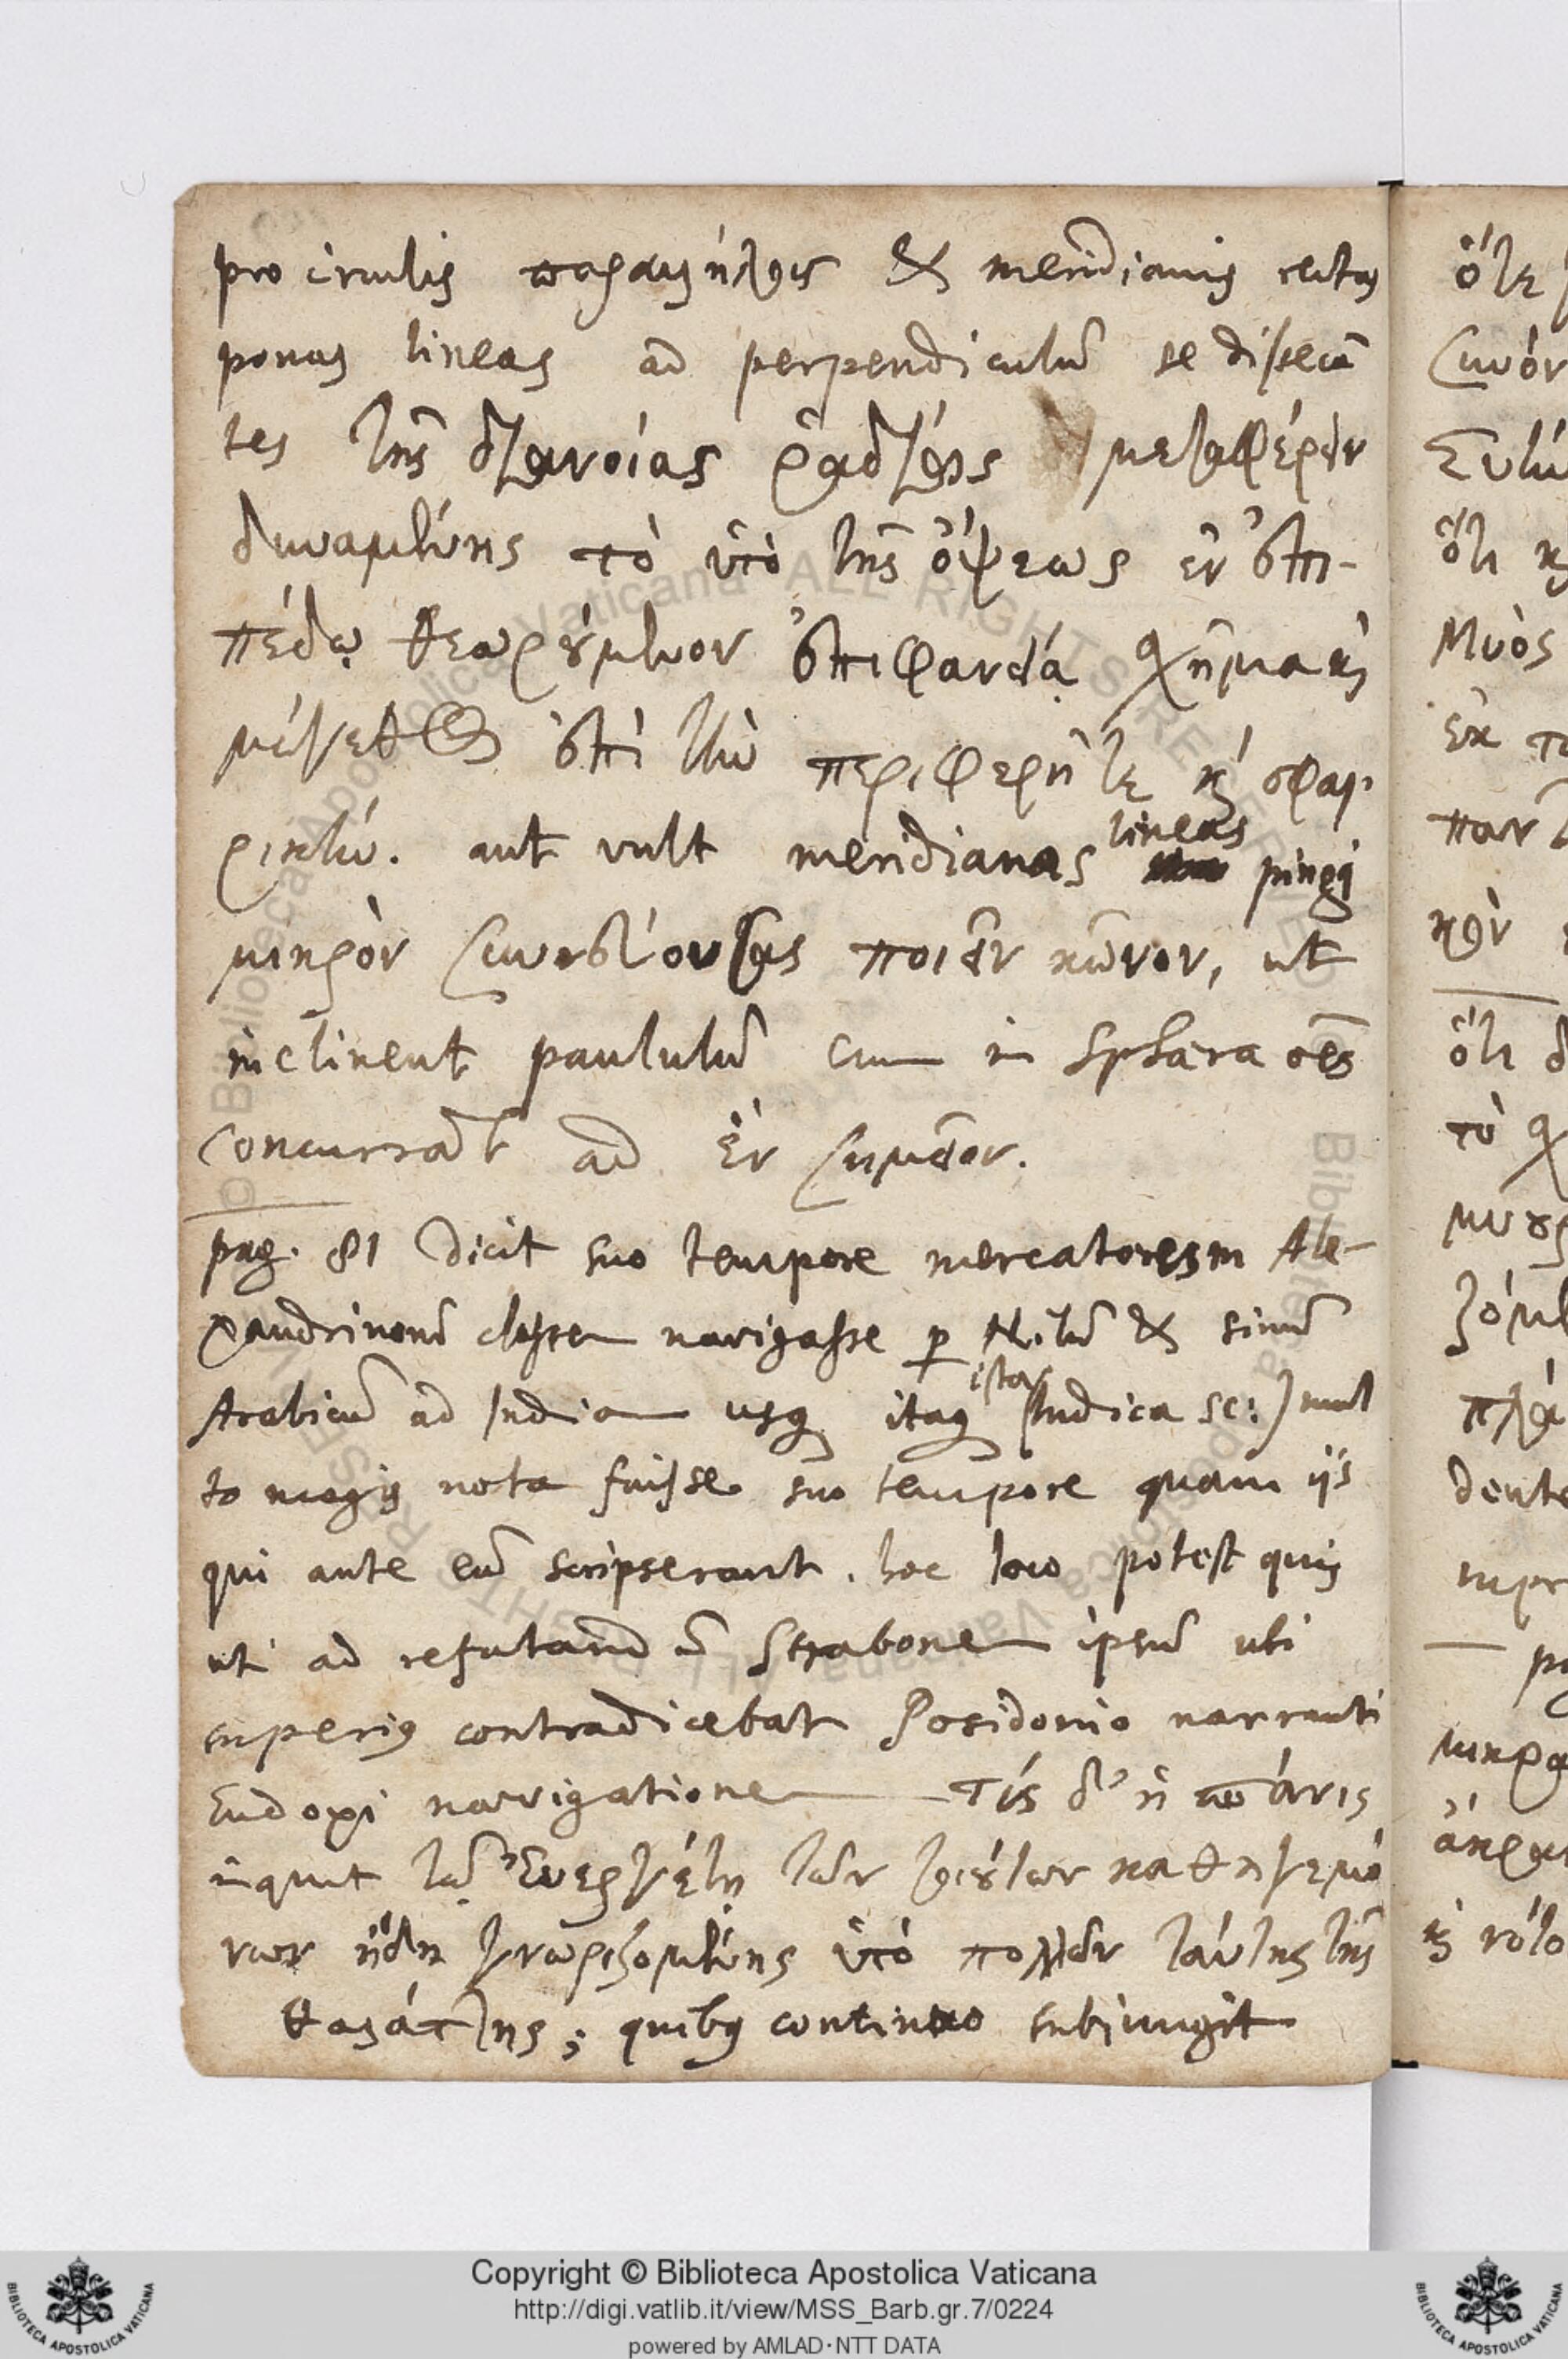 pro circulis παραλλήλοις & meridianis rectas
ponas lineas ad perpendiculũ se dissecã
tes τῆς διανοίας ῥαδίως μεταφέρειν
δυναμένης τὸ ὑπὸ τῆς ὄψεως ἐν ἐπι-
πέδῳ θεωρούμενον ἐπιφανείᾳ σχῆμα καὶ
μέγεθος ἐπὶ τὴν περιφερῆ τε καὶ σφαι
ρικήν. aut vult meridianas lineas pingi
μικρὸν συνεστιούσας ποιεῖν κῶνον, ut
inclinent paululũ cum in sphæra oẽs
concurrãt ad ἓν σημεῖον.
pag. 81 dicit suo tempore mercatores in Ale-
xandrinorũ classem navigasse p Nilũ & sinũ
Arabicũ ad Indiam usq itaq ista (Indica sc:) mul
to magis nota fuisse suo tempore quam ijs
qui ante eũ scripserant. hoc loco potest quis
uti ad refutandũ Strabonem ipsũ ubi
superius contradicebat Posidonio narranti
Eudoxi navigationem τίς δ' ἡ σπάνις
inquit τῷ Εὐεργέτῃ τῶν τοιούτων καθηγεμό
νων ἤδη γνωριζομένης ὑπὸ πολλῶν ταύτης τῆς
θαλάττης; quibus continuo subiungit
ὅτε
συνόν
ὅτι κ
ἐκ το
ὅτι δ
τὸ σχ
deute
supr
μικρα
Copyright © Biblioteca Apostolica Vaticana
http://digi.vatlib.it/view/MSS_Barb.gr.7/0224
powered by AMLAD·NTT DATA